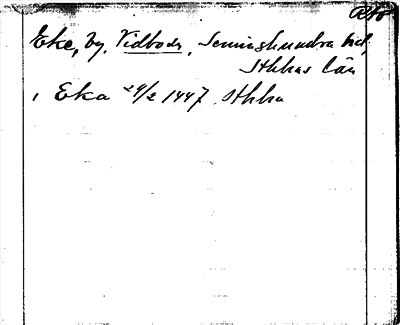 Eke, by, Vidbo sn, Seminghundra hd,
Sthlms län
, Eka 29/2 1447 Sthlm